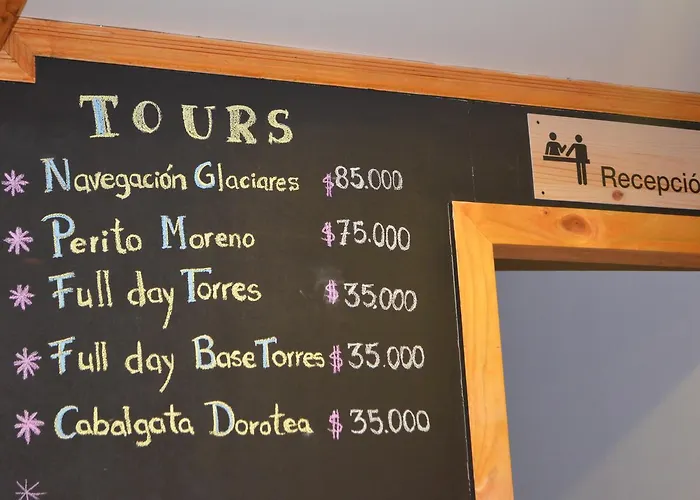 TOURS
* Navegación Glaciares $85.000
* Perito Moreno $75.000
* Full day Torres $35.000
* Full day Base Torres $35.000
* Cabalgata Dorotea $35.000
*
Recepció